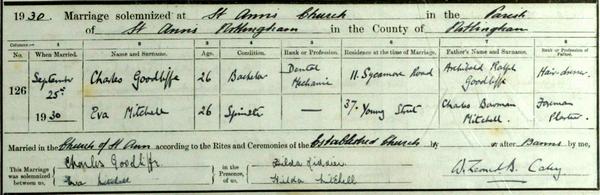 1930 Marriage solemnized at St Ann's Church in the Parish
of St Ann's Nottingham in the County of Nottingham
Columns:— 1 2 3 4 5 6 7 8
No. When Married. Name and Surname. Age. Condition. Rank or Profession. Residence at the time of Marriage. Father's Name and Surname. Rank or Profession of Father.
126 September 25th 1930
Charles Goodliffe 26 Bachelor Dental Mechanic 11. Sycamore Road Archibald Ralph Goodliffe Hair-dresser
Eva Mitchell 26 Spinster — 37. Young Street Charles Bowman Mitchell. Foreman Plasterer
Married in the Church of St Ann according to the Rites and Ceremonies of the Established Church by or after Banns by me,
This Marriage was solemnized between us,
Charles Goodliffe
Eva Mitchell
in the Presence of us,
Hilda Mitchell